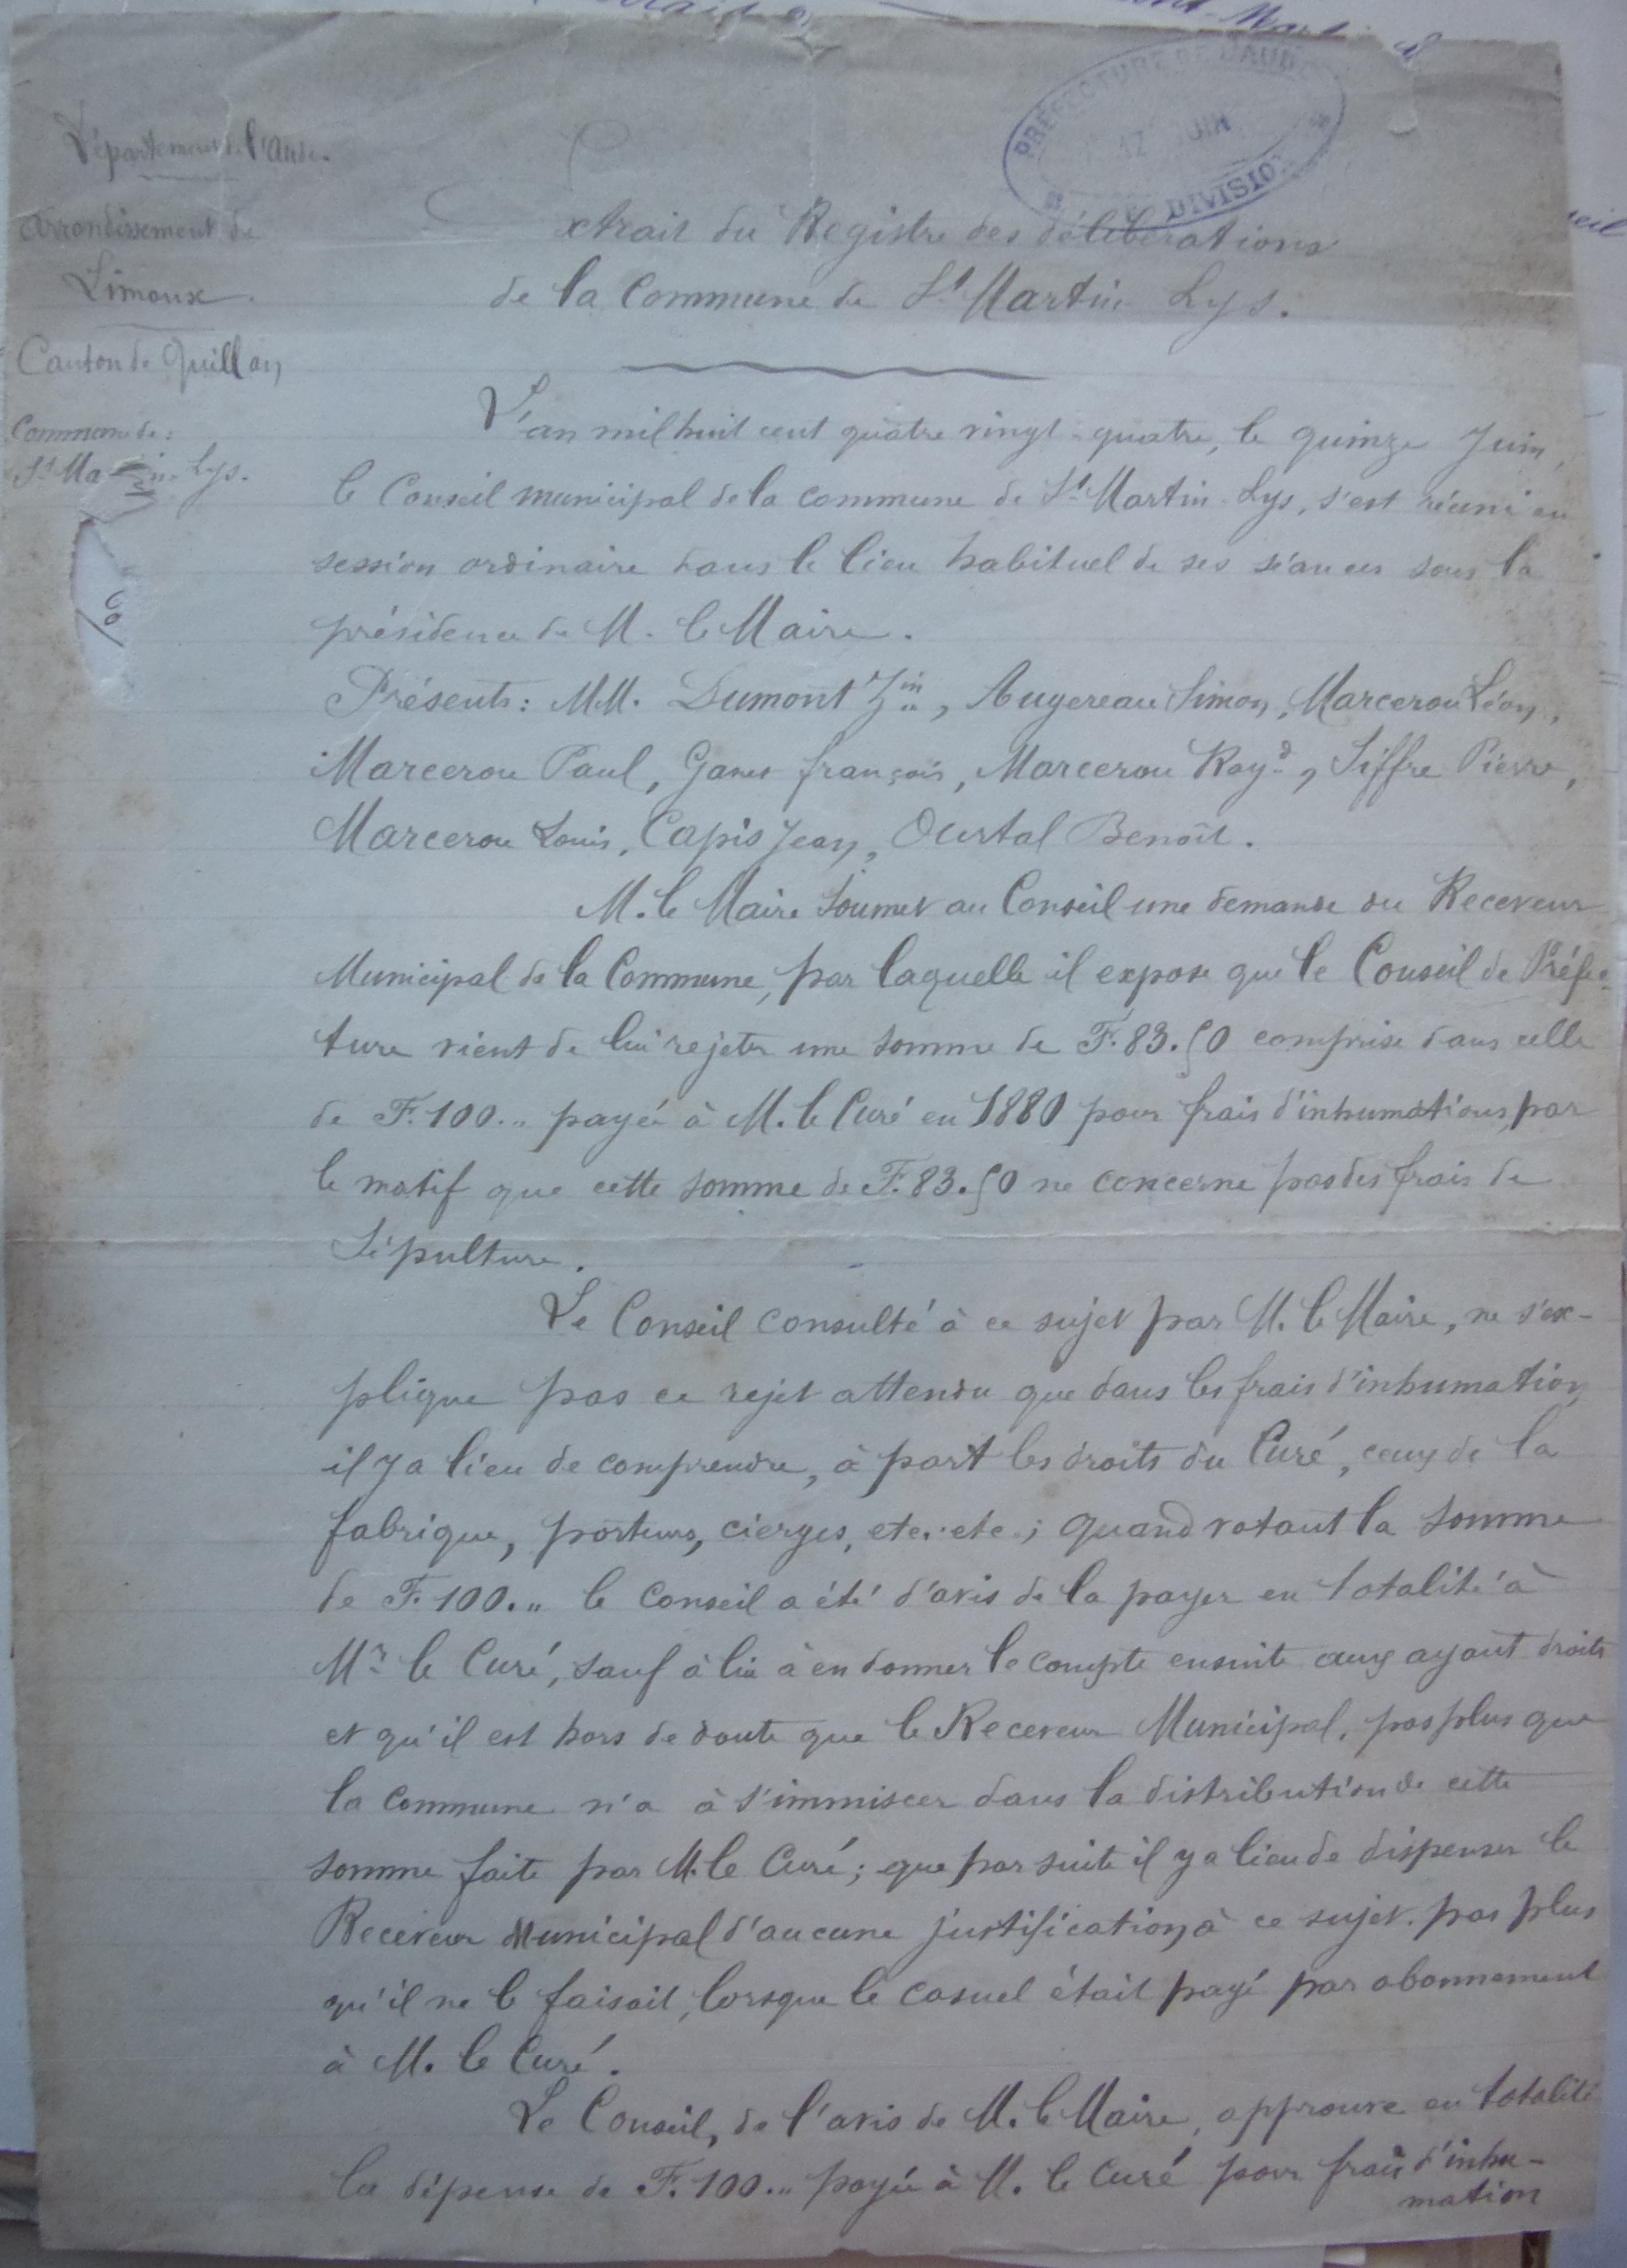 Département de l'Aude.
Arrondissement de
Limoux.
Canton de Quillan
Commune de:
St Martin-Lys.
PRÉFECTURE DE L'AUDE
17 JUIN
DIVISION
Extrait du Registre des délibérations
de la Commune de St Martin Lys.
L'an mil huit cent quatre vingt-quatre, le quinze Juin,
le Conseil municipal de la commune de St Martin-Lys, s'est réuni en
session ordinaire dans le lieu habituel de ses séances sous la
présidence de M. le Maire.
Présents: MM. Dumont Jin, Augereau Simon, Marcerou Léon,
Marcerou Paul, François, Marcerou Rayd, Siffre Pierre,
Marcerou Louis, Capis Jean, Ourtal Benoît.
M. le Maire soumet au Conseil une demande du Receveur
Municipal de la Commune, par laquelle il expose que le Conseil de Préfec-
ture vient de lui rejeter une somme de F. 83.50 comprise dans celle
de F. 100.,, payée à M. le Curé en 1880 pour frais d'inhumations, par
le motif que cette somme de F. 83.50 ne concerne pas des frais de
sépulture.
Le Conseil consulté à ce sujet par M. le Maire, ne s'ex-
plique pas ce rejet attendu que dans les frais d'inhumation
il y a lieu de comprendre, à part les droits du Curé, ceux de la
fabrique, porteurs, cierges, etc. etc.; quand votant la somme
de F. 100.,, le Conseil a été d'avis de la payer en totalité à
Mr le Curé, sauf à lui à en donner le compte ensuite aux ayant droits
et qu'il est hors de doute que le Receveur Municipal, pas plus que
la commune n'a à s'immiscer dans la distribution de cette
somme faite par M. le Curé; que par suite il y a lieu de dispenser le
Receveur Municipal d'aucune justification à ce sujet. pas plus
qu'il ne le faisait, lorsque le casuel était payé par abonnement
à M. le Curé.
Le Conseil, de l'avis de M. le Maire, approuve en totalité
la dépense de F. 100.,, payée à M. le Curé pour frais d'inhu-
mation